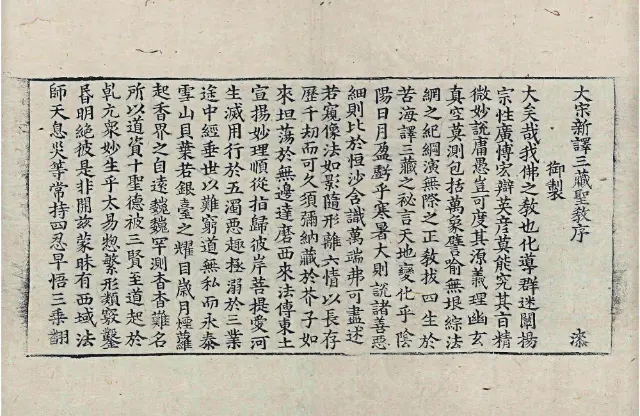 大宋新譯三藏聖教序
御製
大矣哉我佛之教也化導群迷闡揚
宗性廣博宏辯英彥莫能究其旨精
微妙說庸愚豈可度其源義理幽玄
真空莫測包括萬象譬喻無垠綜法
網之紀綱演無際之正教拔四生於
苦海譯三藏之祕言天地變化乎陰
陽日月盈虧乎寒暑大則說諸善惡
細則比於恒沙含識萬端弗可盡述
若窺像法如影隨形離六情以長存
歷千劫而可久須彌納藏於芥子如
來坦蕩於無邊達磨西來法傳東土
宣揚妙理順從指歸彼岸菩提愛河
生滅用行於五濁惡趣拯溺於三業
途中經垂世以難窮道無私而永泰
雪山貝葉若銀臺之耀目歲月煙蘿
起香界之自遠巍巍罕測杳杳難名
所以道資十聖德被三賢至道起於
乾元衆妙生乎太易惣繁形類竅鑿
昏明絕彼是非開該蒙昧有西域法
師天息災等常持四忍早悟三乘翻